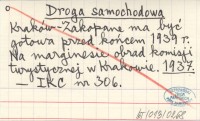 Droga samochodowa
Kraków-Zakopane ma być
gotowa przed końcem 1939 r.
Na marginesie obrad komisji
turystycznej w Krakowie. 1937.
— IKC nr 306.